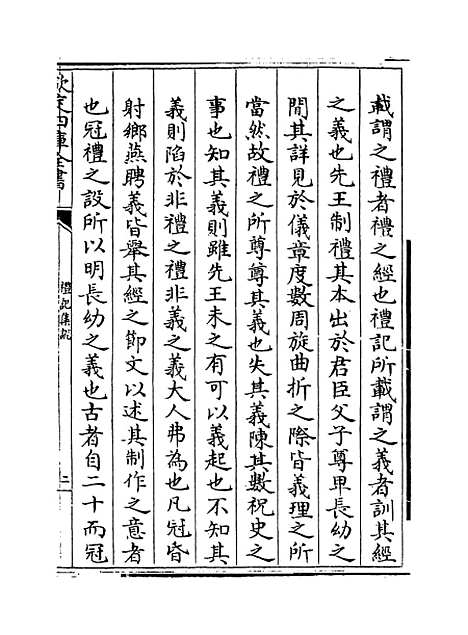 載謂之禮者禮之經也禮記所載謂之義者訓其經
之義也先王制禮其本出於君臣父子尊卑長幼之
間其詳見於儀章度數周旋曲折之際皆義理之所
當然故禮之所尊尊其義也失其義陳其數祝史之
事也知其義則雖先王未之有可以義起也不知其
義則陷於非禮之禮非義之義大人弗為也凡冠昏
射鄉燕聘義皆舉其經之節文以述其制作之意者
也冠禮之設所以明長幼之義也古者自二十而冠
欽定四庫全書
禮記集說
二